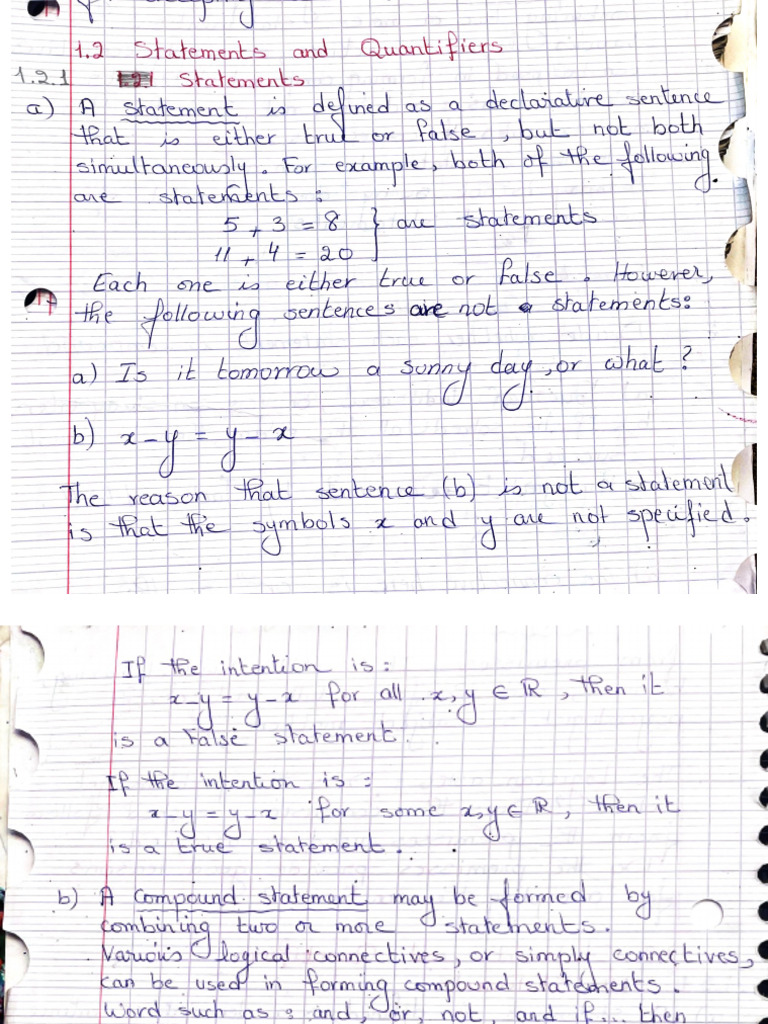 1.2 Statements and Quantifiers
1.2.1 Statements
a) A statement is defined as a declarative sentence
that is either true or false, but not both
simultaneously. For example, both of the following
are statements:
5 + 3 = 8 } are statements
11 + 4 = 20
Each one is either true or false. However,
the following sentences are not a statements:
a) Is it tomorrow a sunny day, or what?
b) x - y = y - x
The reason that sentence (b) is not a statement
is that the symbols x and y are not specified.
If the intention is:
x - y = y - x for all x, y ∈ ℝ, then it
is a false statement.
If the intention is:
x - y = y - x for some x, y ∈ ℝ, then it
is a true statement.
b) A compound statement may be formed by
combining two or more statements.
Various logical connectives, or simply connectives,
can be used in forming compound statements.
Word such as: and, or, not, and if... then